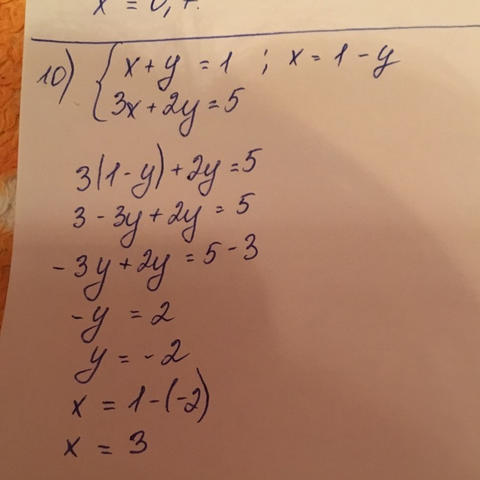 x = 0,
10) { x + y = 1 ; x = 1 - y
3x + 2y = 5
3(1 - y) + 2y = 5
3 - 3y + 2y = 5
- 3y + 2y = 5 - 3
- y = 2
y = - 2
x = 1 - (-2)
x = 3